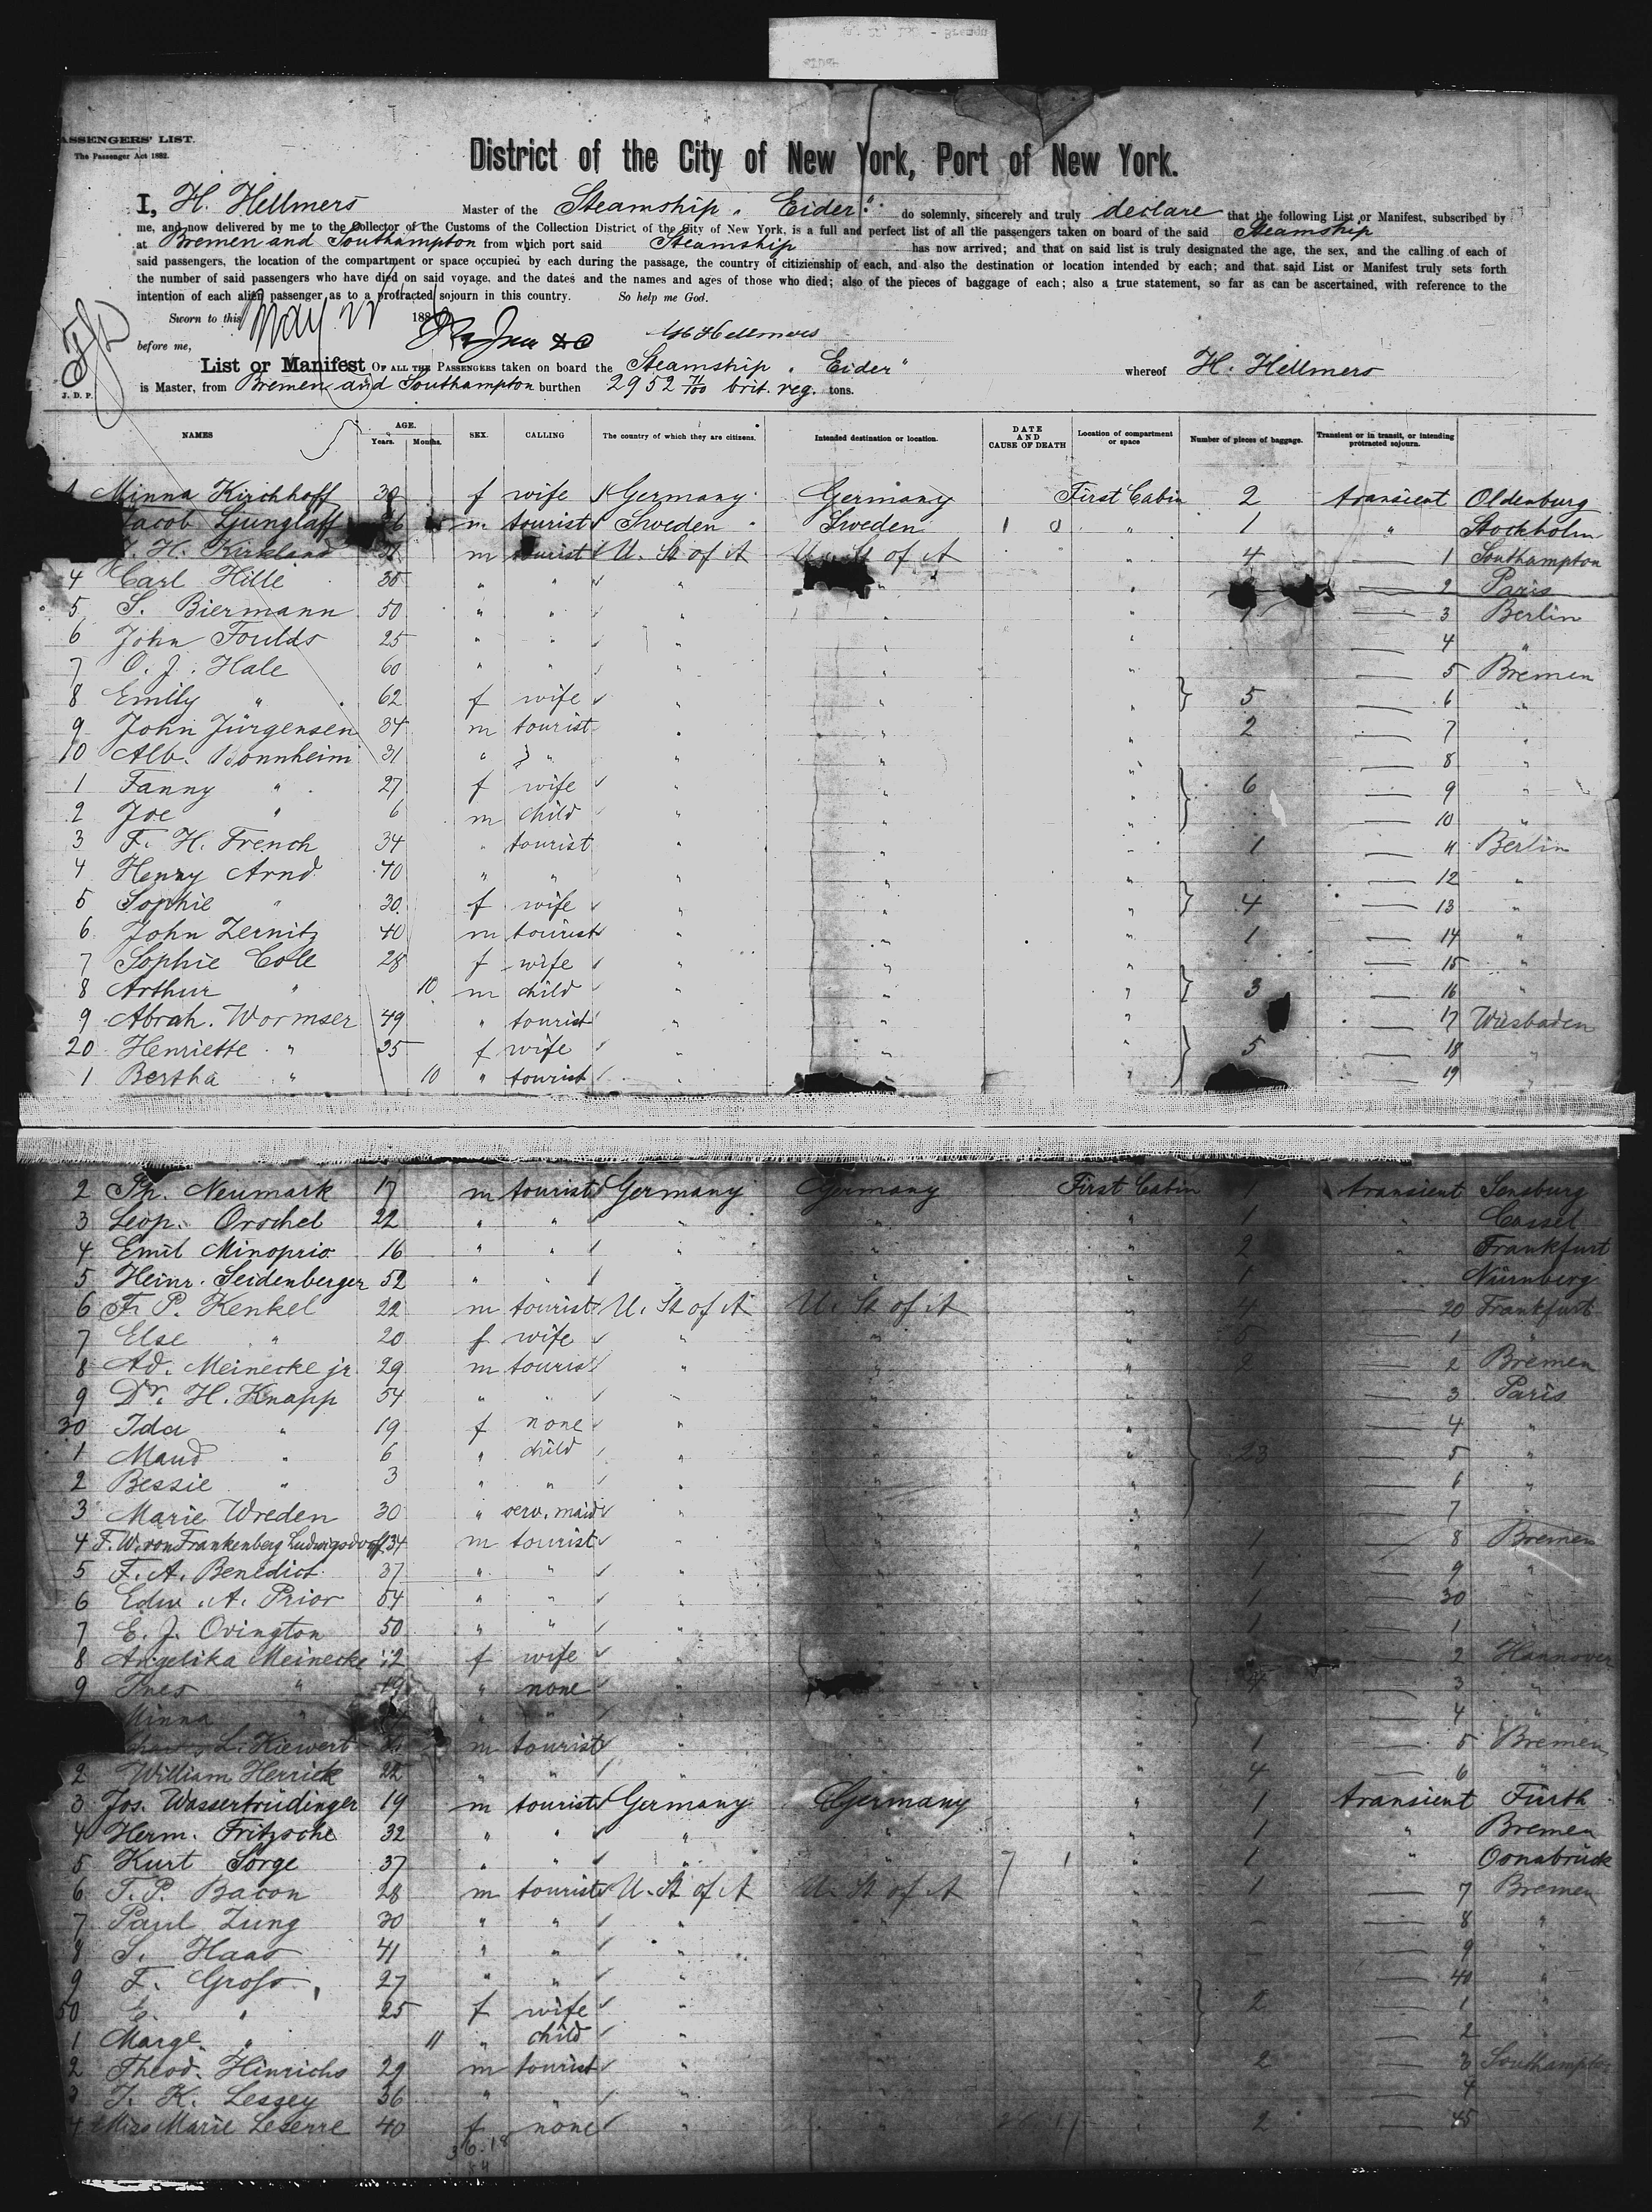 PASSENGERS' LIST.
The Passenger Act 1882.
District of the City of New York, Port of New York.
I, H. Hellmers Master of the Steamship „ Eider" do solemnly, sincerely and truly declare that the following List or Manifest, subscribed by
me, and now delivered by me to the Collector of the Customs of the Collection District of the City of New York, is a full and perfect list of all the passengers taken on board of the said Steamship
at Bremen and Southampton from which port said Steamship has now arrived; and that on said list is truly designated the age, the sex, and the calling of each of
said passengers, the location of the compartment or space occupied by each during the passage, the country of citizienship of each, and also the destination or location intended by each; and that said List or Manifest truly sets forth
the number of said passengers who have died on said voyage, and the dates and the names and ages of those who died; also of the pieces of baggage of each; also a true statement, so far as can be ascertained, with reference to the
intention of each alien passenger as to a protracted sojourn in this country. So help me God.
Sworn to this May 188
before me, H Hellmers
List or Manifest OF ALL THE PASSENGERS taken on board the Steamship „ Eider" whereof H. Hellmers
is Master, from Bremen and Southampton burthen 2952 71/100 brit. reg. tons.
J. D. P.
NAMES AGE. Years. Months. SEX. CALLING The country of which they are citizens. Intended destination or location. DATE AND CAUSE OF DEATH Location of compartment or space Number of pieces of baggage. Transient or in transit, or intending protracted sojourn.
1 Minna Kirchhoff f wife Germany Germany First Cabin 2 transient Oldenburg
Jacob Ljunglaff m tourist Sweden Sweden 1 0 " 1 " Stockholm
H. Kirkland m tourist U. St of A U. St of A " 4 — 1 Southampton
4 Carl Hille 35 " " " " " — 2 Paris
5 S. Biermann 50 " " " " " — 3 Berlin
6 John Foulds 25 " " " " " — 4 "
7 O. J. Hale 60 " " " " " — 5 Bremen
8 Emily " 62 f wife " " " 5 — 6 "
9 John Jürgensen 34 m tourist " " " 2 — 7 "
10 Alb. Bonnheim 31 " " " " " — 8 "
1 Fanny " 27 f wife " " " 6 — 9 "
2 Joe " 6 m child " " " — 10 "
3 F. H. French 34 " tourist " " " 1 — 11 Berlin
4 Henry Arnd 40 " " " " " — 12 "
5 Sophie " 30 f wife " " " 4 — 13 "
6 John Zernitz 40 m tourist " " " 1 — 14 "
7 Sophie Cole 28 f wife " " " — 15 "
8 Arthur " 10 m child " " " 3 — 16 "
9 Abrah. Wormser 49 " tourist " " " — 17 Wiesbaden
20 Henriette " 25 f wife " " " 5 — 18 "
1 Bertha " 10 " tourist " " — 19 "
2 Ph. Neumark 17 m tourist Germany Germany First Cabin 1 transient Sensburg
3 Leop. Orschel 22 " " " " " 1 " Cassel
4 Emil Minoprio 16 " " " " " 2 " Frankfurt
5 Heinr. Seidenberger 52 " " " " " 1 " Nürnberg
6 F. P. Kenkel 22 m tourist U. St of A U. St of A " 4 — 20 Frankfurt
7 Else " 20 f wife " " " 5 — 1 "
8 Ad. Meinecke jr. 29 m tourist " " " 2 — 2 Bremen
9 Dr. H. Knapp 54 " " " " " — 3 Paris
30 Ida " 19 f none " " " — 4 "
1 Maud " 6 " child " " " 23 — 5 "
2 Bessie " 3 " " " " " — 6 "
3 Marie Wreden 30 " serv. maid " " " — 7 "
4 F. W. von Frankenberg Ludwigsdorff 34 m tourist " " " 1 — 8 Bremen
5 F. A. Benedict 37 " " " " " 1 — 9 "
6 Edw. A. Prior 54 " " " " " 1 — 30 "
7 E. J. Ovington 50 " " " " " 1 — 1 "
8 Angelika Meinecke f wife " " " — 2 Hannover
9 Ines " 19 " none " " — 3 "
Minna " " " " " " — 4 "
L. Kiewert m tourist " " " 1 — 5 Bremen
2 William Herrick 22 " " " " " 4 — 6 "
3 Jos. Wassertrüdinger 19 m tourist Germany Germany " 1 transient Fürth
4 Herm. Fritzsche 32 " " " " " 1 " Bremen
5 Kurt Sorge 37 " " " " 7 1 " 1 " Osnabrück
6 T. P. Bacon 28 m tourist U. St of A U. St of A " 1 — 7 Bremen
7 Paul Zung 30 " " " " " — — 8 "
8 S. Haas 41 " " " " " — — 9 "
9 F. Gross 27 " " " " " — 40 "
50 E. " 25 f wife " " " 2 — 1 "
1 Margl. " 11 " child " " " — 2 "
2 Theod. Hinrichs 29 m tourist " " " 2 — 3 Southampton
3 J. K. Lessey 36 " " " " " — 4
4 Miss Marie Leserre 40 f none " " " 2 — 45